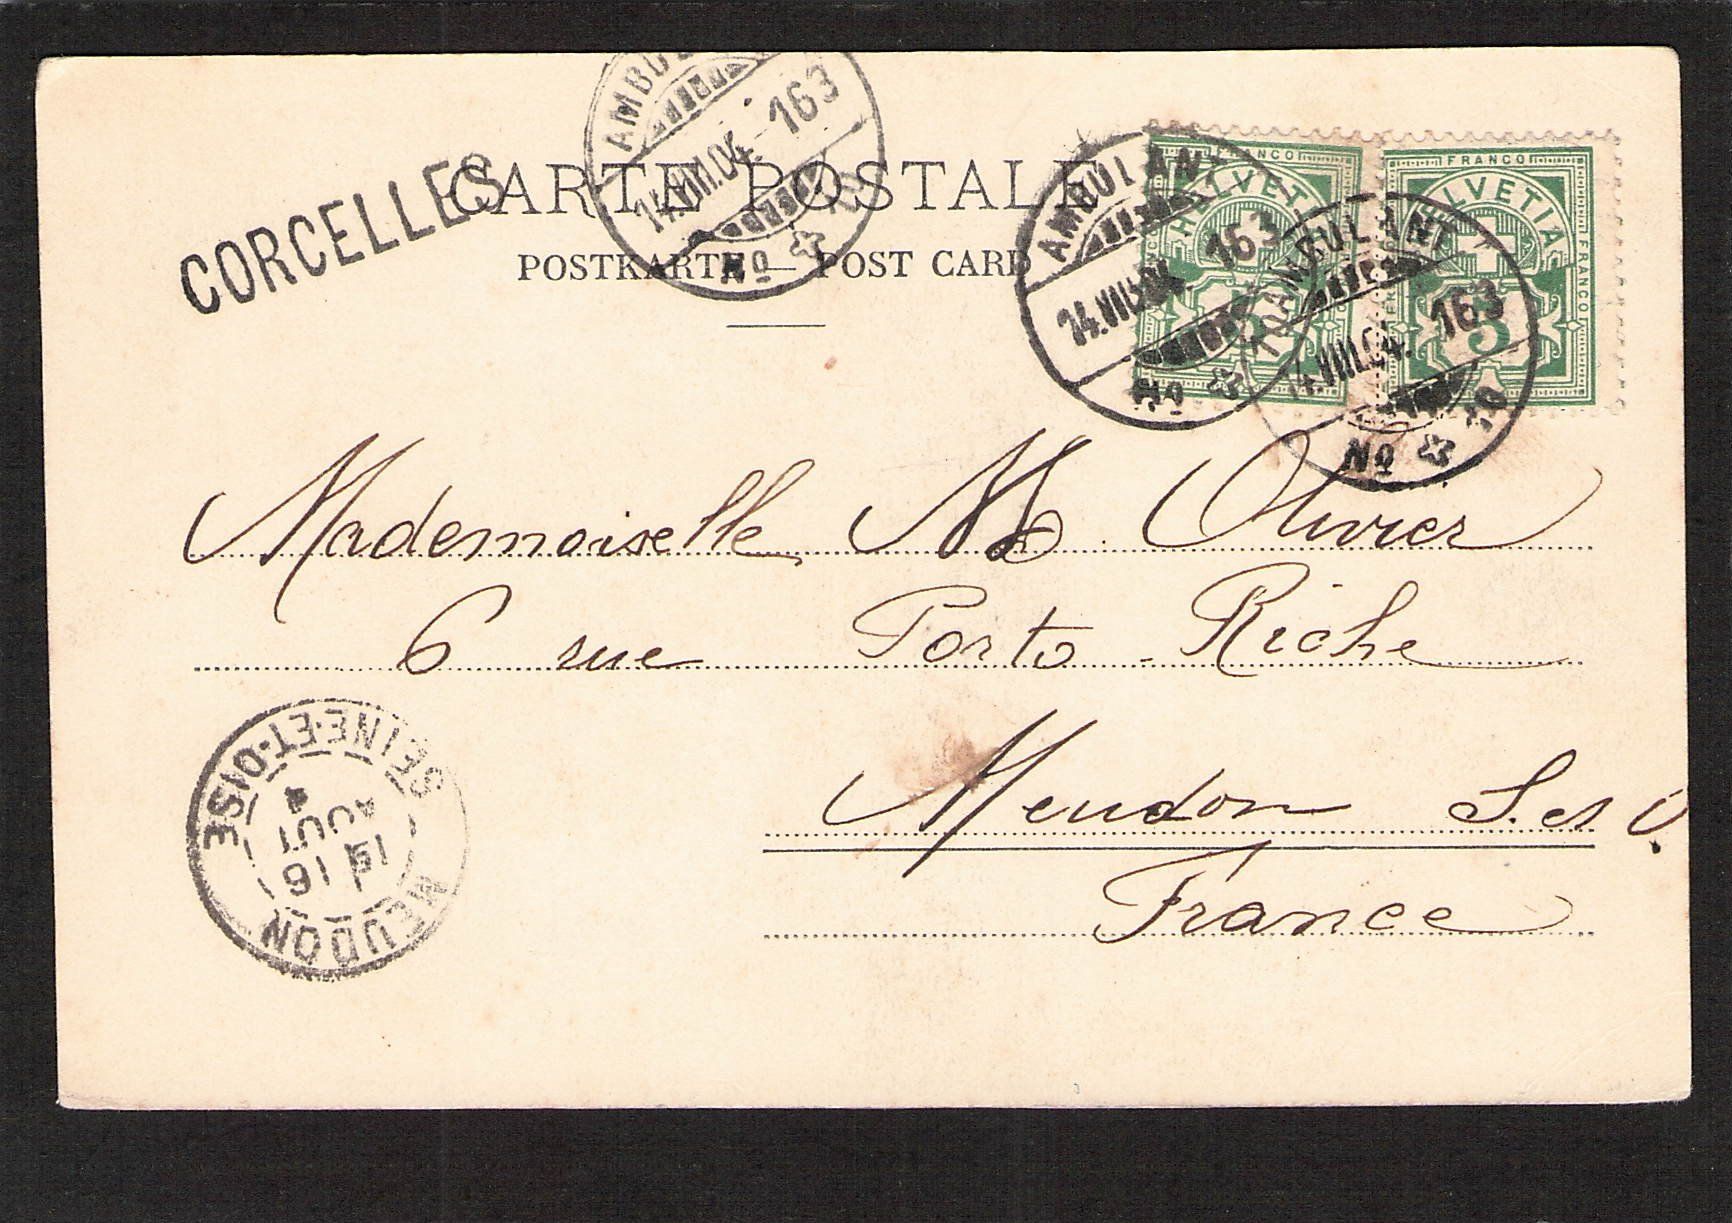 AMBUL
14.VIII.04. 163
No 10
CORCELLES
CARTE POSTALE
POSTKARTE — POST CARD
FRANCO
HELVETIA
5
FRANCO
HELVETIA
FRANCO
5
AMBULANT
14.VIII.04. 163
No 10
AMBULANT
14.VIII.04. 163
No 10
Mademoiselle M Olivier
6 rue Porto-Riche
Meudon S. et O.
France
SEINE-ET-OISE
16
AOUT
4
MEUDON